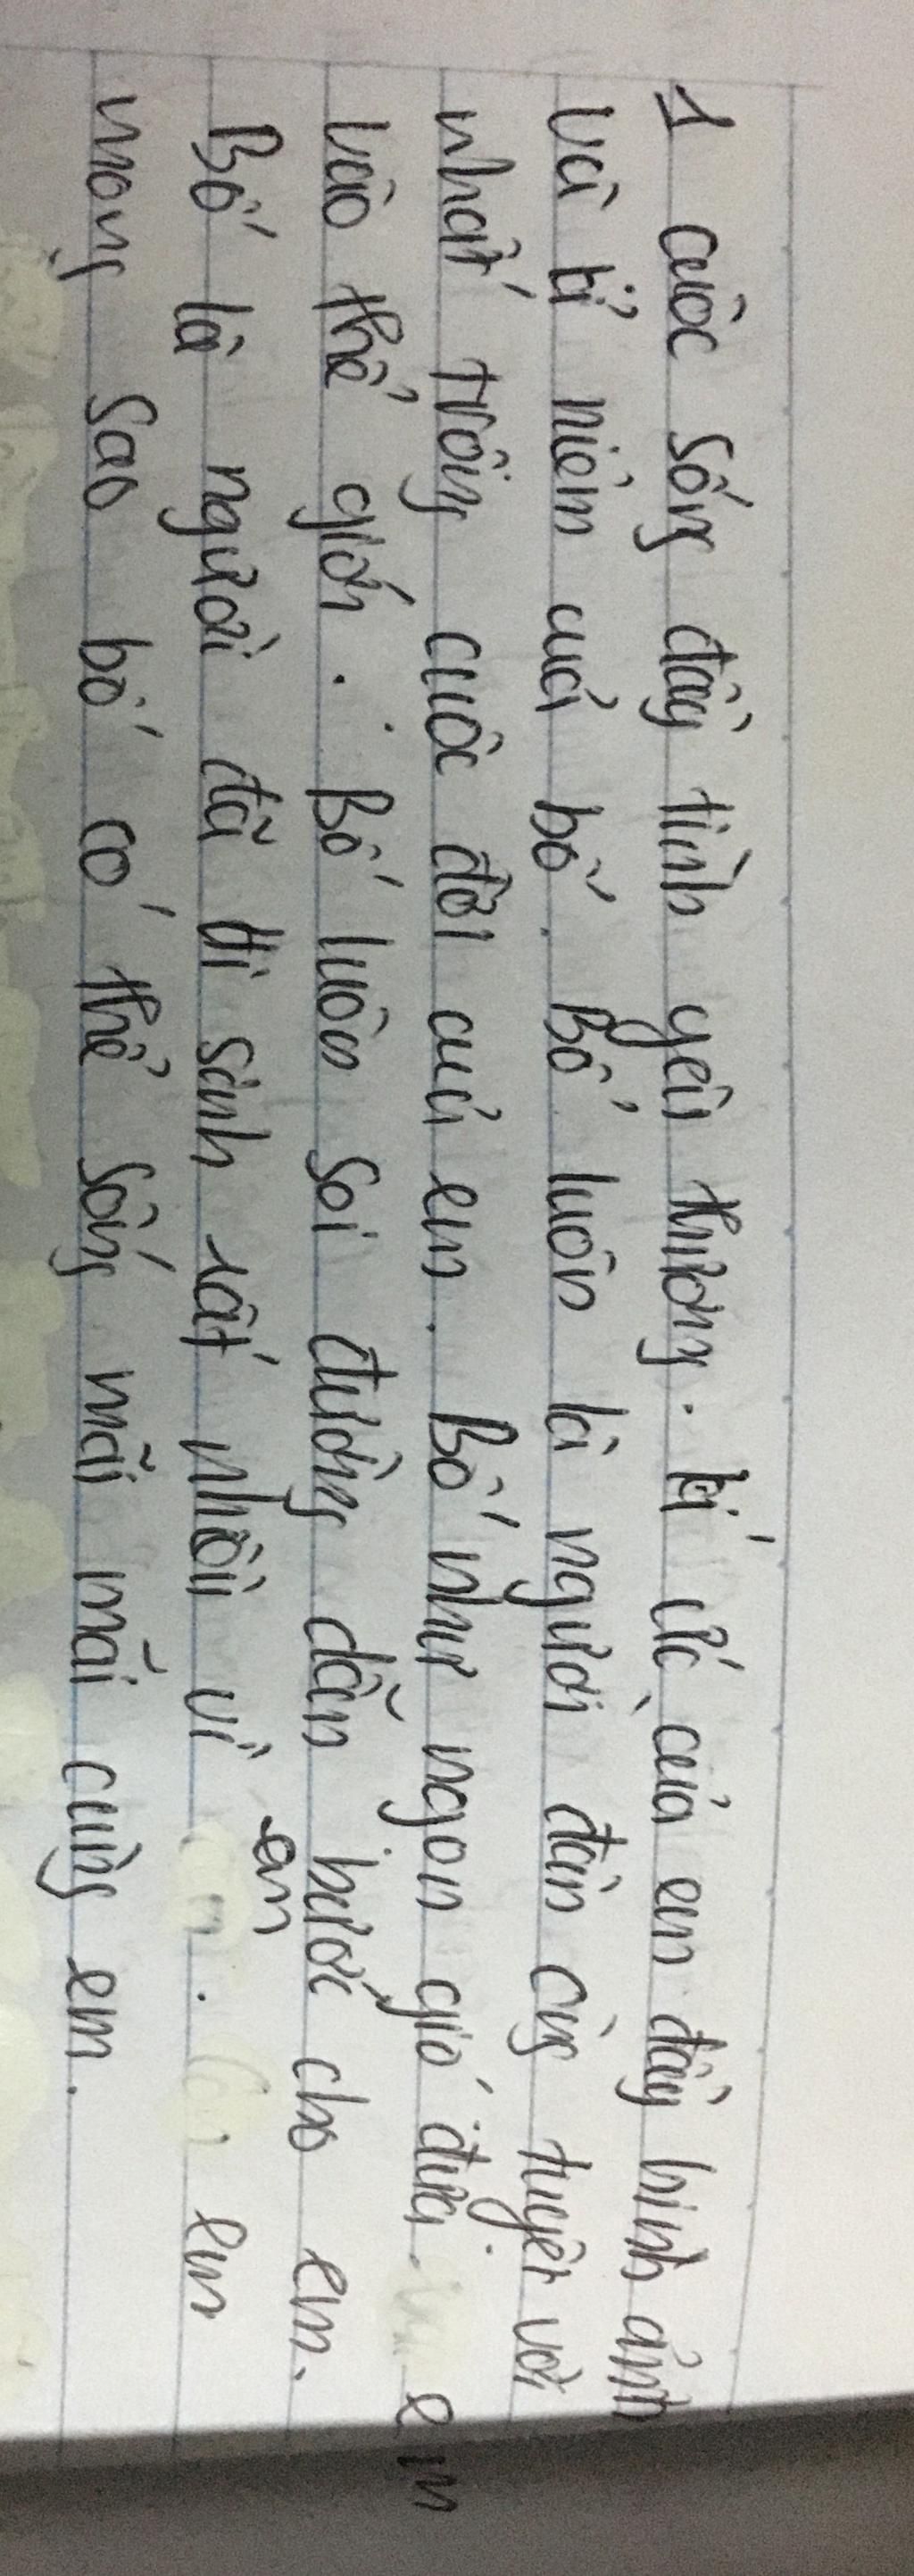 1 cuộc sống đầy tình yêu thương. kí ức của em đầy hình ảnh
và kỉ niệm của bố. Bố luôn là người đàn ông tuyệt vời
nhất trong cuộc đời của em. Bố như ngọn gió đưa em
vào thế giới. Bố luôn soi đường dẫn bước cho em.
Bố là người đã hi sinh rất nhiều vì em. em
mong sao bố có thể sống mãi mãi cùng em.